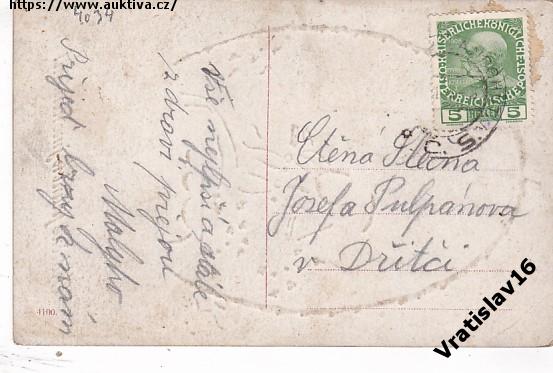 https://www.auktiva.cz/
4034
Vše nejlepší a stále
zdraví přejou
Přijeď brzy k nám
KAISERLICHE KÖNIGLICHE
ÖSTERREICHISCHE
5 5
Ctěná Slečna
Josefa Pulpánova
v Dřítči
4100.
Vratislav16